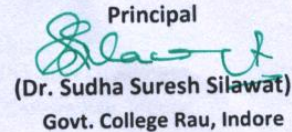 Principal
(Dr. Sudha Suresh Silawat)
Govt. College Rau, Indore